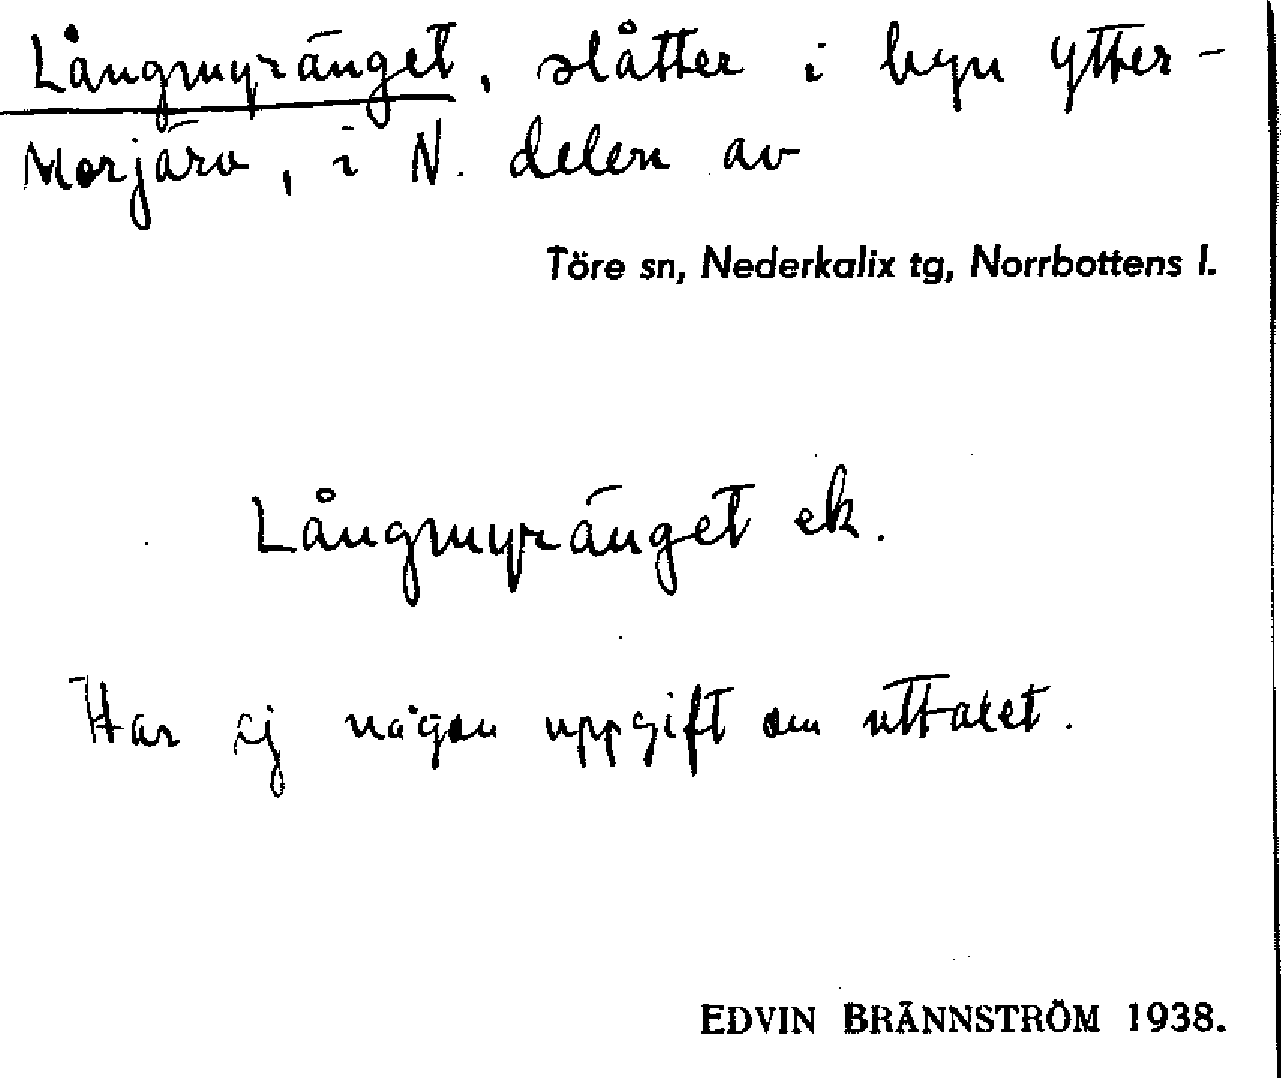 Långmyränget, slåtter i byn Ytter-
Morjärv, i N. delen av
Töre sn, Nederkalix tg, Norrbottens l.
Långmyränget ek.
Har ej någon uppgift om uttalet.
EDVIN BRÄNNSTRÖM 1938.